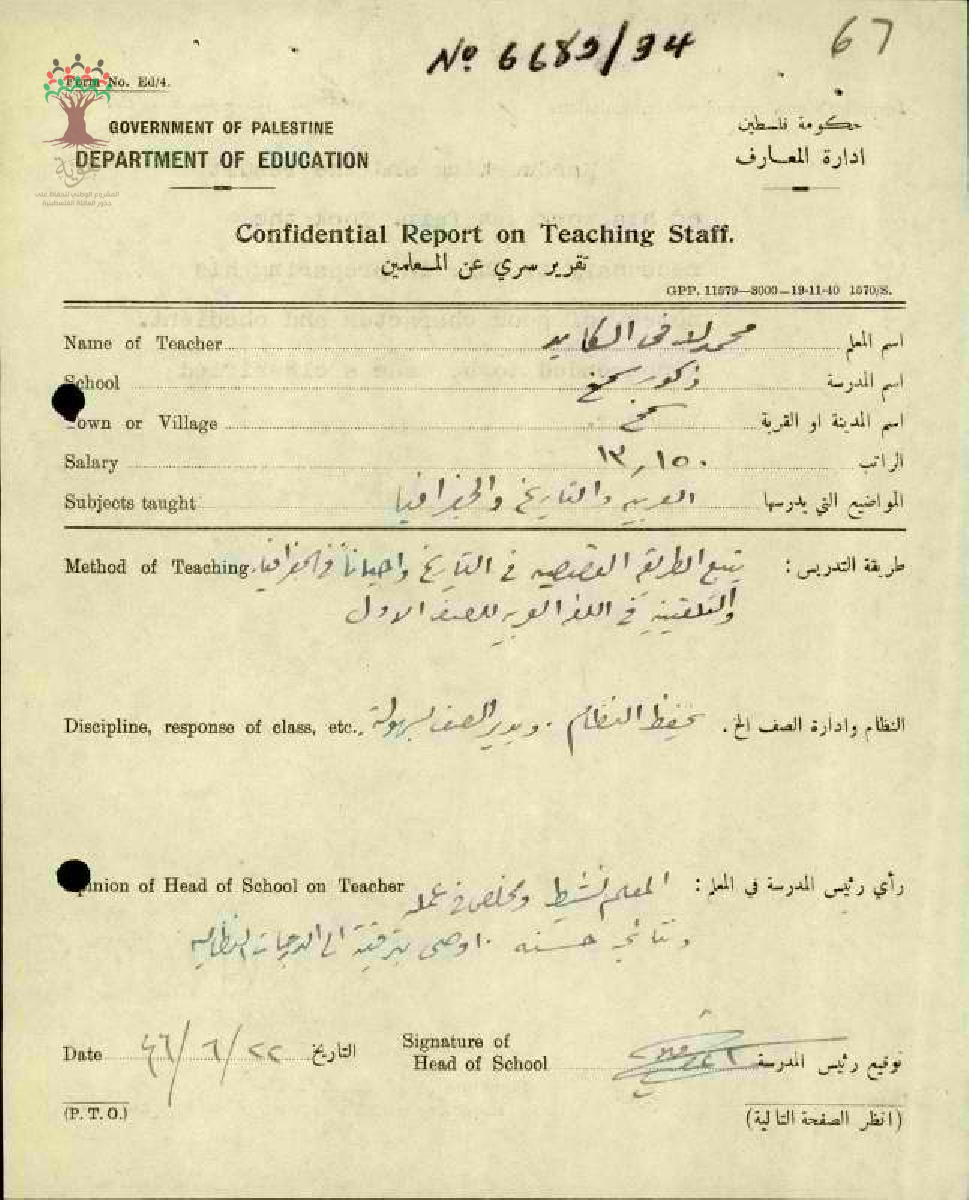 No 6683/34
67
Form No. Ed/4.
GOVERNMENT OF PALESTINE
DEPARTMENT OF EDUCATION
حكومة فلسطين
ادارة المعارف
هوية
المشروع الوطني للحفاظ على
جذور العائلة الفلسطينية
Confidential Report on Teaching Staff.
تقرير سري عن المعلمين
GPP. 11579—3000—19-11-40 1570/S.
Name of Teacher محمد لافي الكايد اسم المعلم
School ذكور سمخ اسم المدرسة
Town or Village سمخ اسم المدينة او القرية
Salary ١٣٫١٥٠ الراتب
Subjects taught العربية والتاريخ والجغرافيا المواضيع التي يدرسها
Method of Teaching. يتبع الطريقة القصصية في التاريخ واحياناً في الجغرافيا، طريقة التدريس :
والتلقينية في اللغة العربية للصف الاول
Discipline, response of class, etc. يحفظ النظام . ويدير الصف بسهولة النظام وادارة الصف الخ .
Opinion of Head of School on Teacher المعلم نشيط ومخلص في عمله رأي رئيس المدرسة في المعلم :
ونتائجه حسنه . اوصي بترقيته الى الدرجات النظامية
Date ٢٢/٦/٤٦ التاريخ
Signature of
Head of School توقيع رئيس المدرسة
(P. T. O.)
(انظر الصفحة التالية)